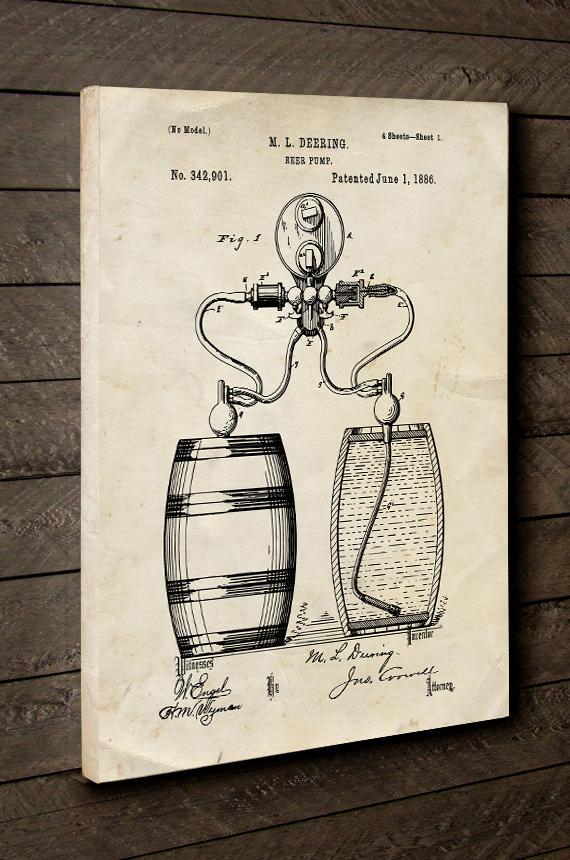 (No Model.)
4 Sheets—Sheet 1.
M. L. DEERING.
BEER PUMP.
No. 342,901.
Patented June 1, 1886.
Fig. 1
Witnesses
Inventor
M. L. Deering.
W. Engel
By
Attorney
H. M. Wyman